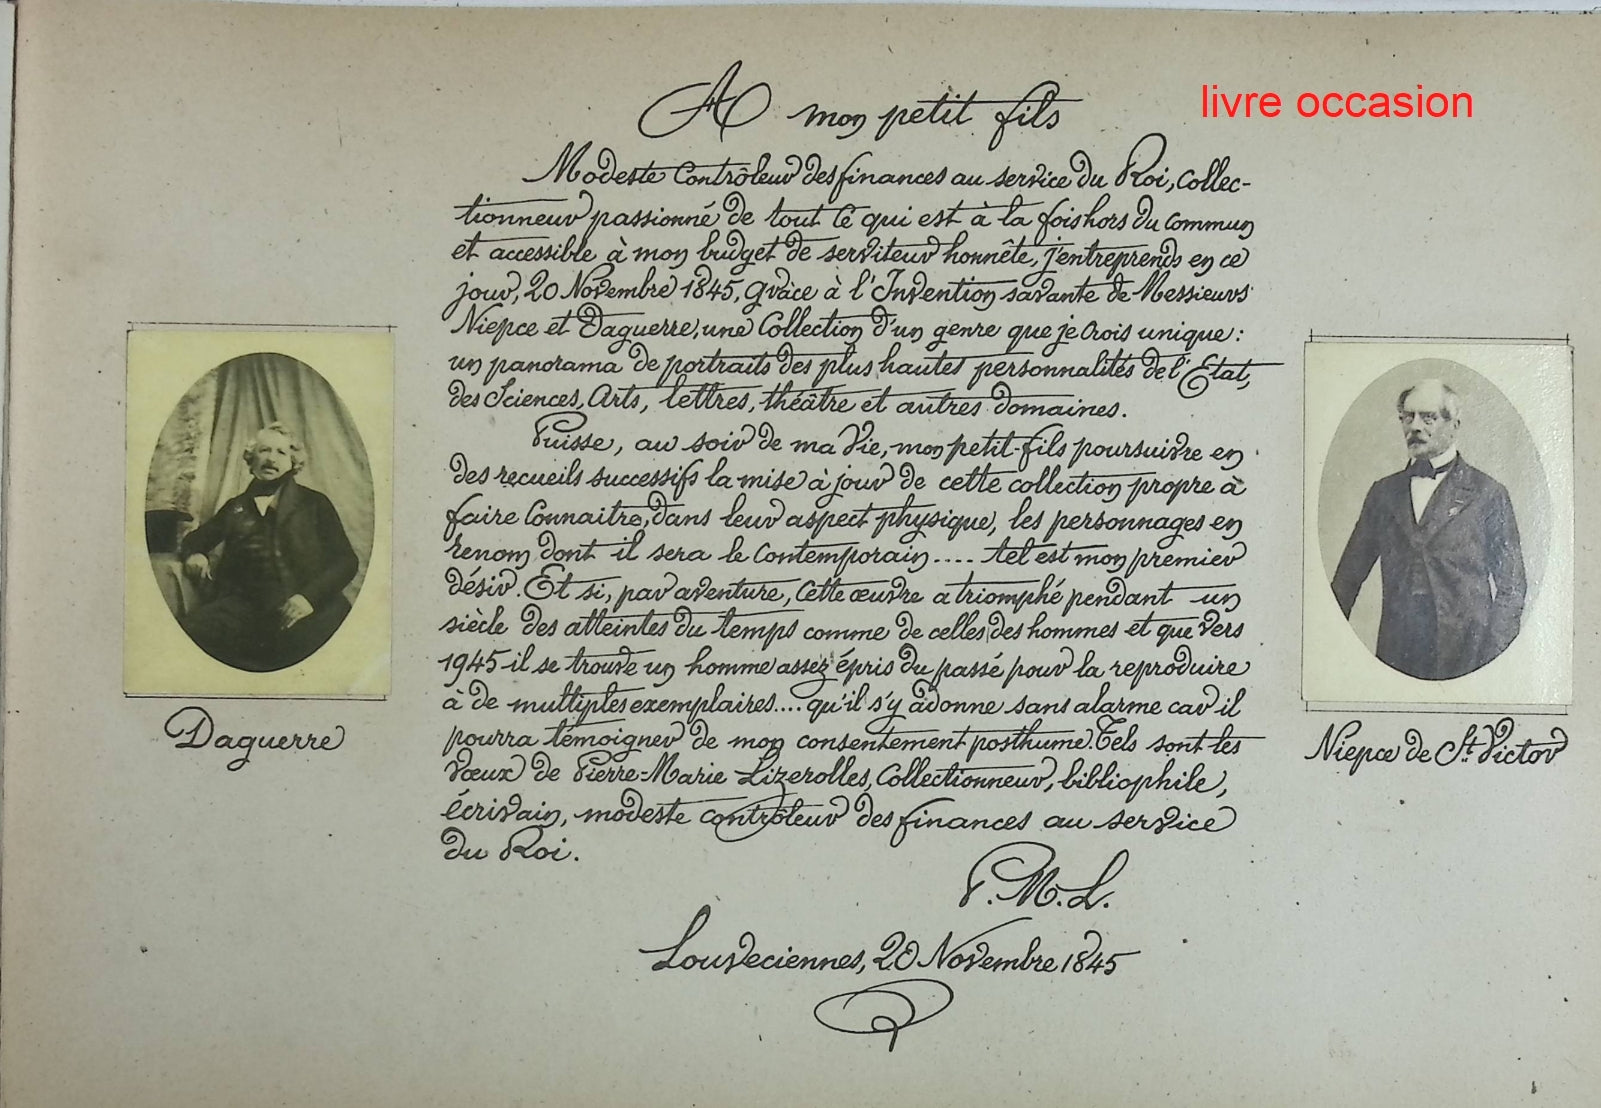 livre occasion
A mon petit fils
Modeste Contrôleur des finances au service du Roi, Collec-
tionneur passionné de tout ce qui est à la fois hors du commun
et accessible à mon budget de serviteur honnête, j'entreprends en ce
jour, 20 Novembre 1845, grâce à l'Invention savante de Messieurs
Niepce et Daguerre, une Collection d'un genre que je crois unique :
un panorama de portraits des plus hautes personnalités de l'Etat,
des Sciences, Arts, lettres, théâtre et autres domaines.
Puisse, au soir de ma vie, mon petit-fils poursuivre en
des recueils successifs la mise à jour de cette collection propre à
faire Connaitre, dans leur aspect physique, les personnages en
renom dont il sera le Contemporain.... tel est mon premier
désir. Et si, par aventure, Cette œuvre a triomphé pendant un
siècle des atteintes du temps comme de celles des hommes et que vers
1945 il se trouve un homme assez épris du passé pour la reproduire
à de multiples exemplaires.... qu'il s'y adonne sans alarme car il
pourra témoigner de mon consentement posthume. Tels sont les
vœux de Pierre-Marie Lizerolles, Collectionneur, bibliophile,
écrivain, modeste contrôleur des finances au service
du Roi.
P.M.L.
Louveciennes, 20 Novembre 1845
Daguerre
Niepce de St. Victor